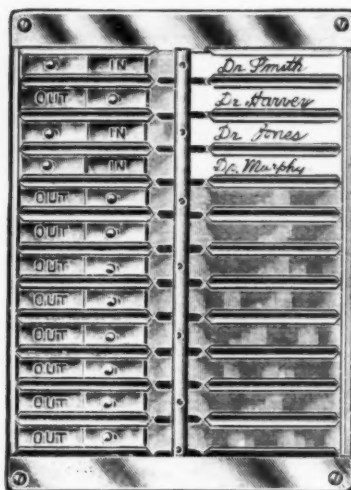 IN Dr Smith
OUT Dr. Harvey
IN Dr Jones
IN Dr. Murphy
OUT
OUT
OUT
OUT
OUT
OUT
OUT
OUT